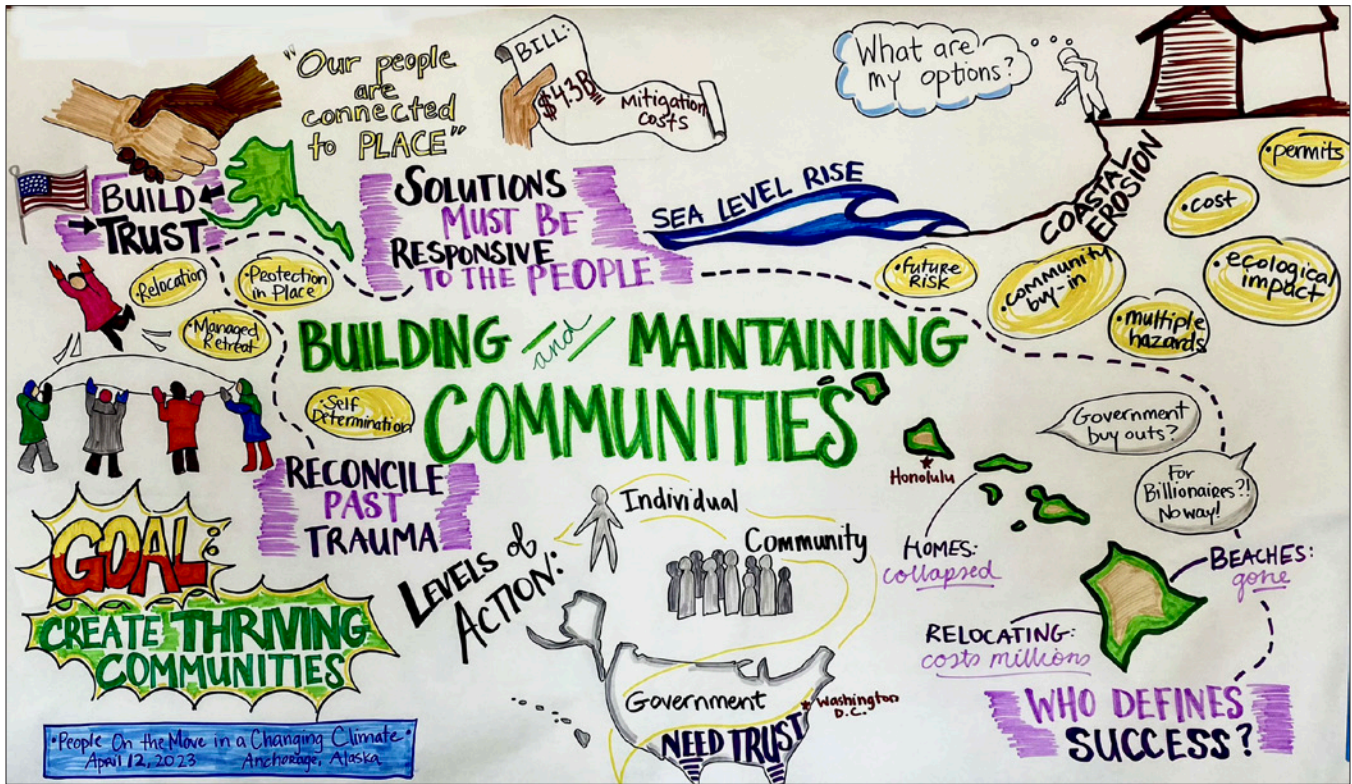 "Our people
are
connected
to PLACE"
BILL:
$4.3B
Mitigation
Costs
What are
my options?
BUILD
TRUST
SOLUTIONS
MUST BE
RESPONSIVE
TO THE PEOPLE
SEA LEVEL RISE
COASTAL
EROSION
• permits
• cost
• ecological
impact
• future
RISK
• community
buy-in
• multiple
hazards
• Relocation
• Protection
in Place
• Managed
Retreat
• Self
Determination
BUILDING and MAINTAINING
COMMUNITIES
RECONCILE
PAST
TRAUMA
GOAL:
CREATE THRIVING
COMMUNITIES
LEVELS of
ACTION:
Individual
Community
Government
NEED TRUST
Washington
D.C.
Honolulu
Government
buy outs?
For
Billionaires?!
No way!
HOMES:
collapsed
BEACHES:
gone
RELOCATING:
costs millions
WHO DEFINES
SUCCESS?
• People On the Move in a Changing Climate •
April 12, 2023 Anchorage, Alaska